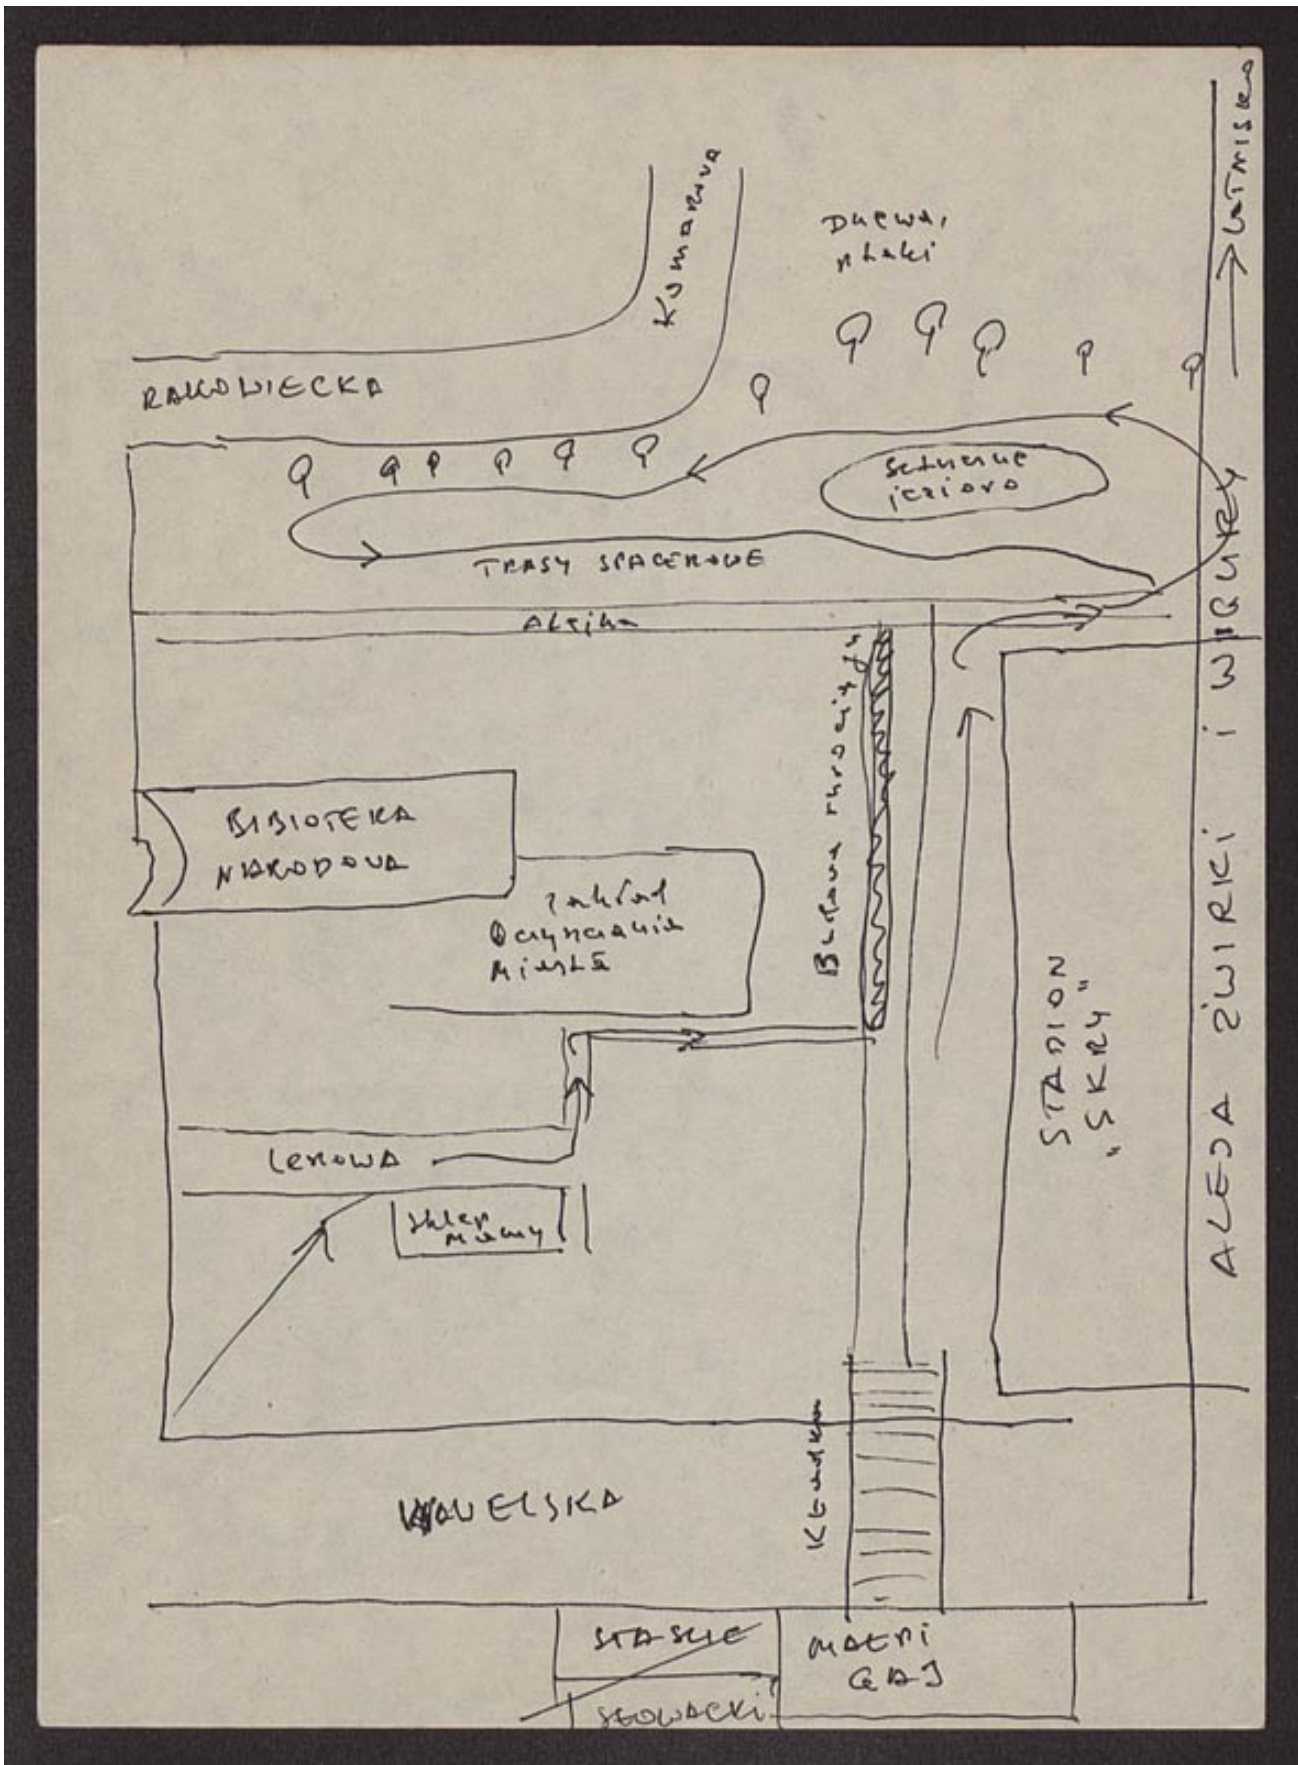 LOTNISKO
KUMAKOWA
DRZEWA,
ptaki
RAKOWIECKA
Sztuczne
jezioro
TRASY SPACEROWE
Alejka
ALEJA ŻWIRKI i WIGURY
BIBIOTEKA
NARODOWA
Zakład
Oczyszczania
Miasta
Budowa
STADION
"SKRY"
LEKOWA
Sklep
Mamy
Kładka
WAWELSKA
STASZIC
SŁOWACKI
MAŁPI
GAJ